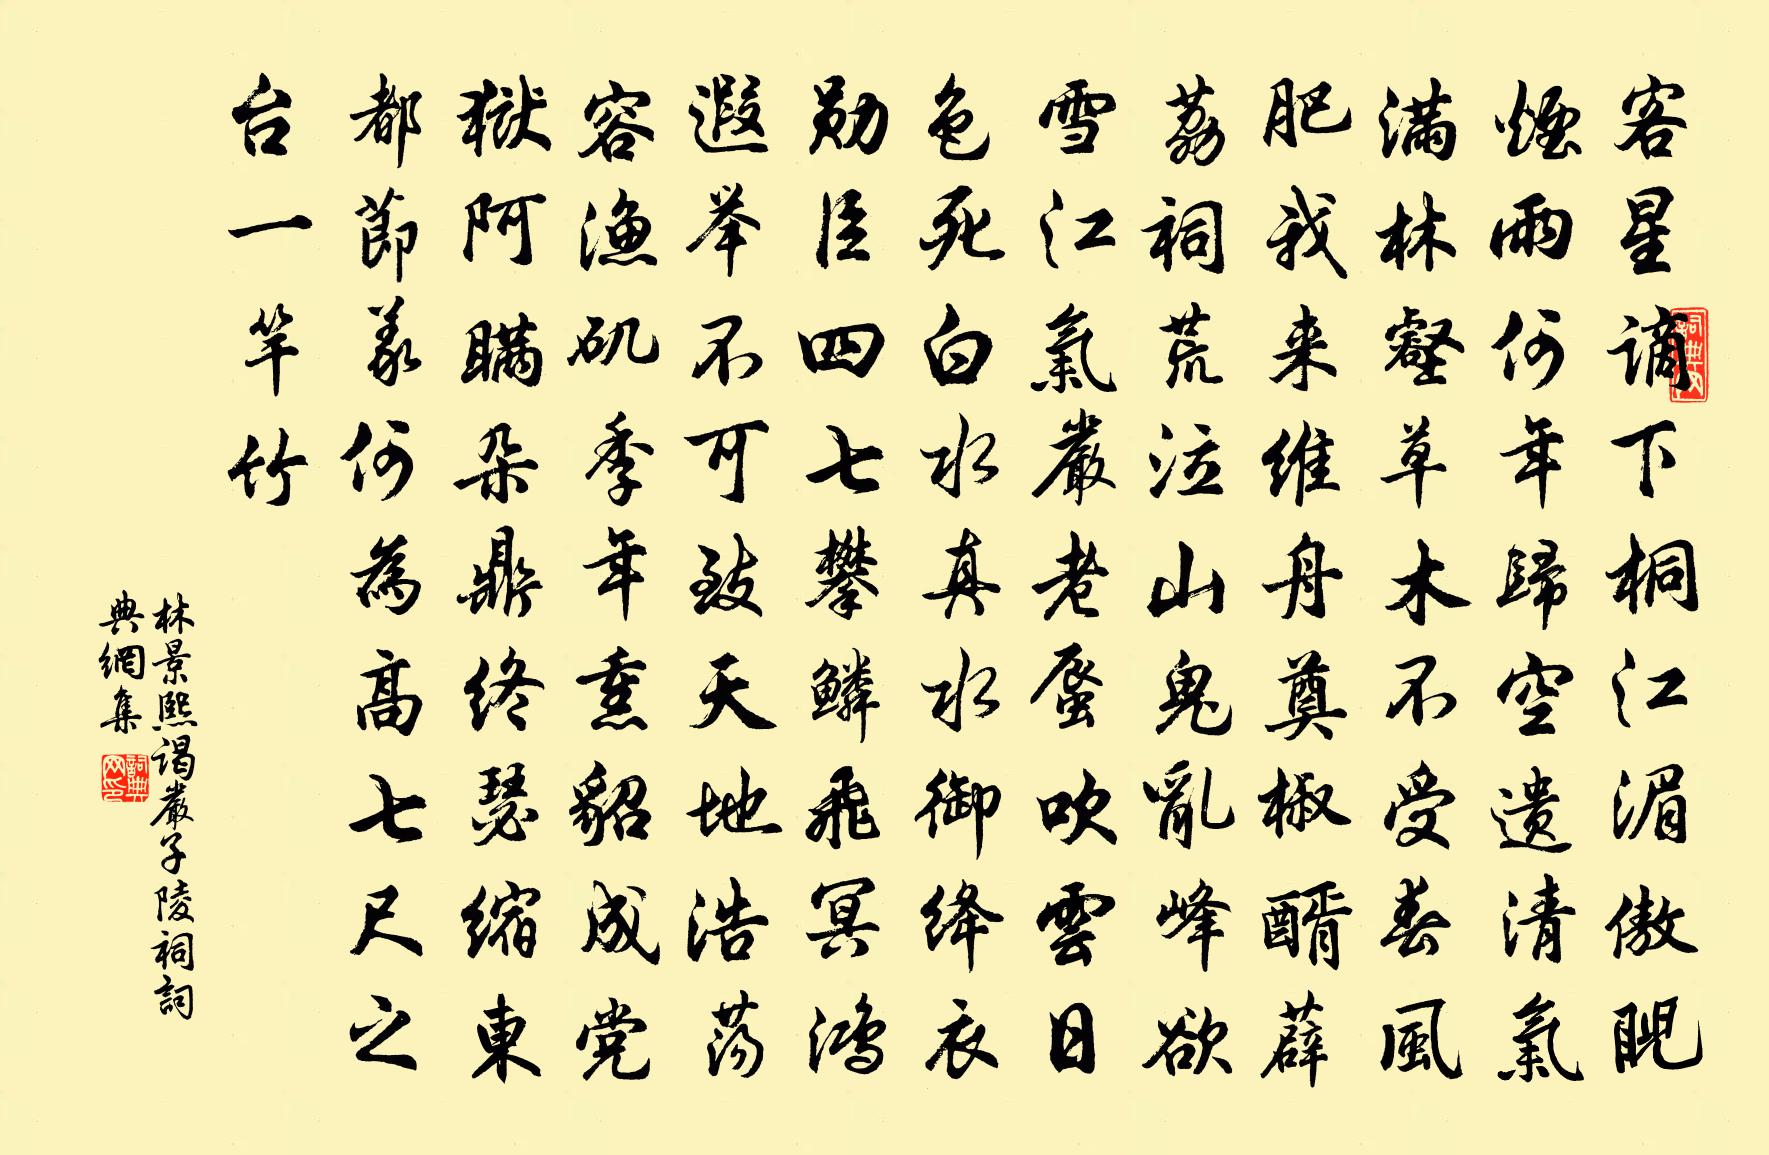 客星謫下桐江湄傲睨
煙雨何年歸空遗清氣
满林壑草木不受春風
肥我来维舟奠椒醑薜
荔祠荒泣山鬼亂峰欲
雪江氣嚴老蜃吹雲日
色死白水真水御绛衣
勋臣四七攀鳞飛冥鸿
遐举不可致天地浩荡
容渔矶季年熏貂成党
獄阿瞒朵鼎终瑟缩東
都節義何為高七尺之
台一竿竹
林景熙谒嚴子陵祠詞
典網集
詞典网
詞典网印